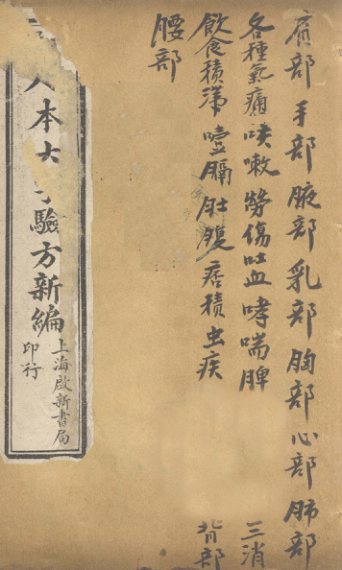 肩部 手部 腋部 乳部 胸部 心部 肺部
各種氣痛 咳嗽 勞傷 吐血 哮喘 脾 三消
飲食積滯 噎膈 肚腹 痞積 虫疾 背部
腰部
本大 驗方新編
上海啟新書局
印行